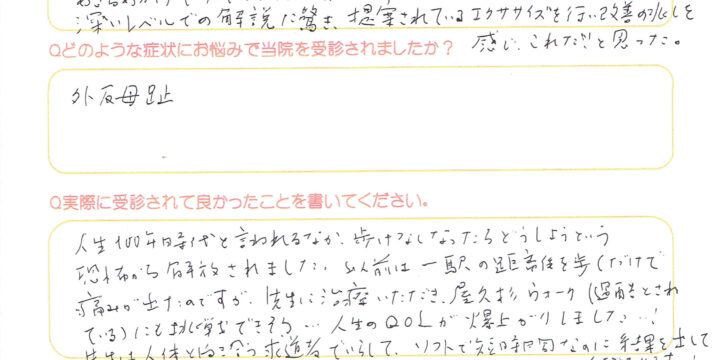 深いレベルでの解説に驚き、提案されているエクササイズを行い改善の兆しを
Qどのような症状にお悩みで当院を受診されましたか？ 感じ、これだ！と思った。
外反母趾
Q実際に受診されて良かったことを書いてください。
人生100年時代と言われるなか、歩けなくなったらどうしようという
恐怖から解放されました。以前は一駅の距離を歩くだけで
痛みが出たのですが、先生に治療いただき、屋久杉ウォーク（過酷とされ
ている）にも挑戦できそう…人生のQOLが爆上がりしました…！
先生は人体と向き合う求道者でいらして、ソフトで短時間なのに結果を出して